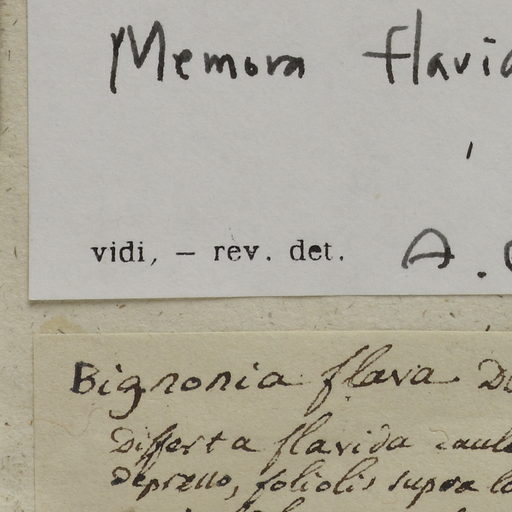 Memora flavid
vidi, – rev. det. A.
Bignonia flava
Differt a flavida caule
depresso, foliolis supra